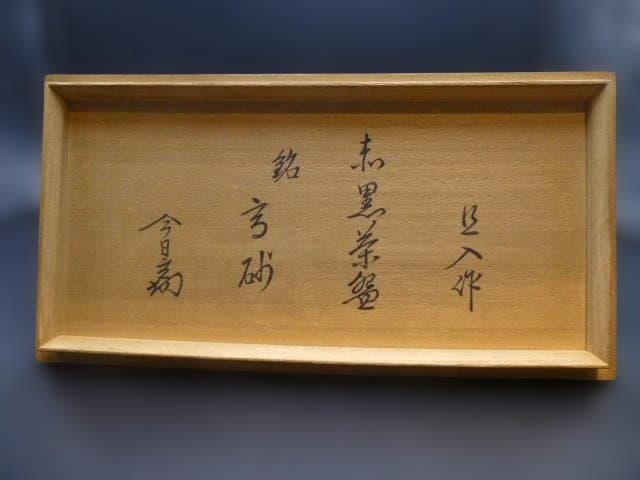 旦入作
赤黒茶盌
銘
高砂
今日庵